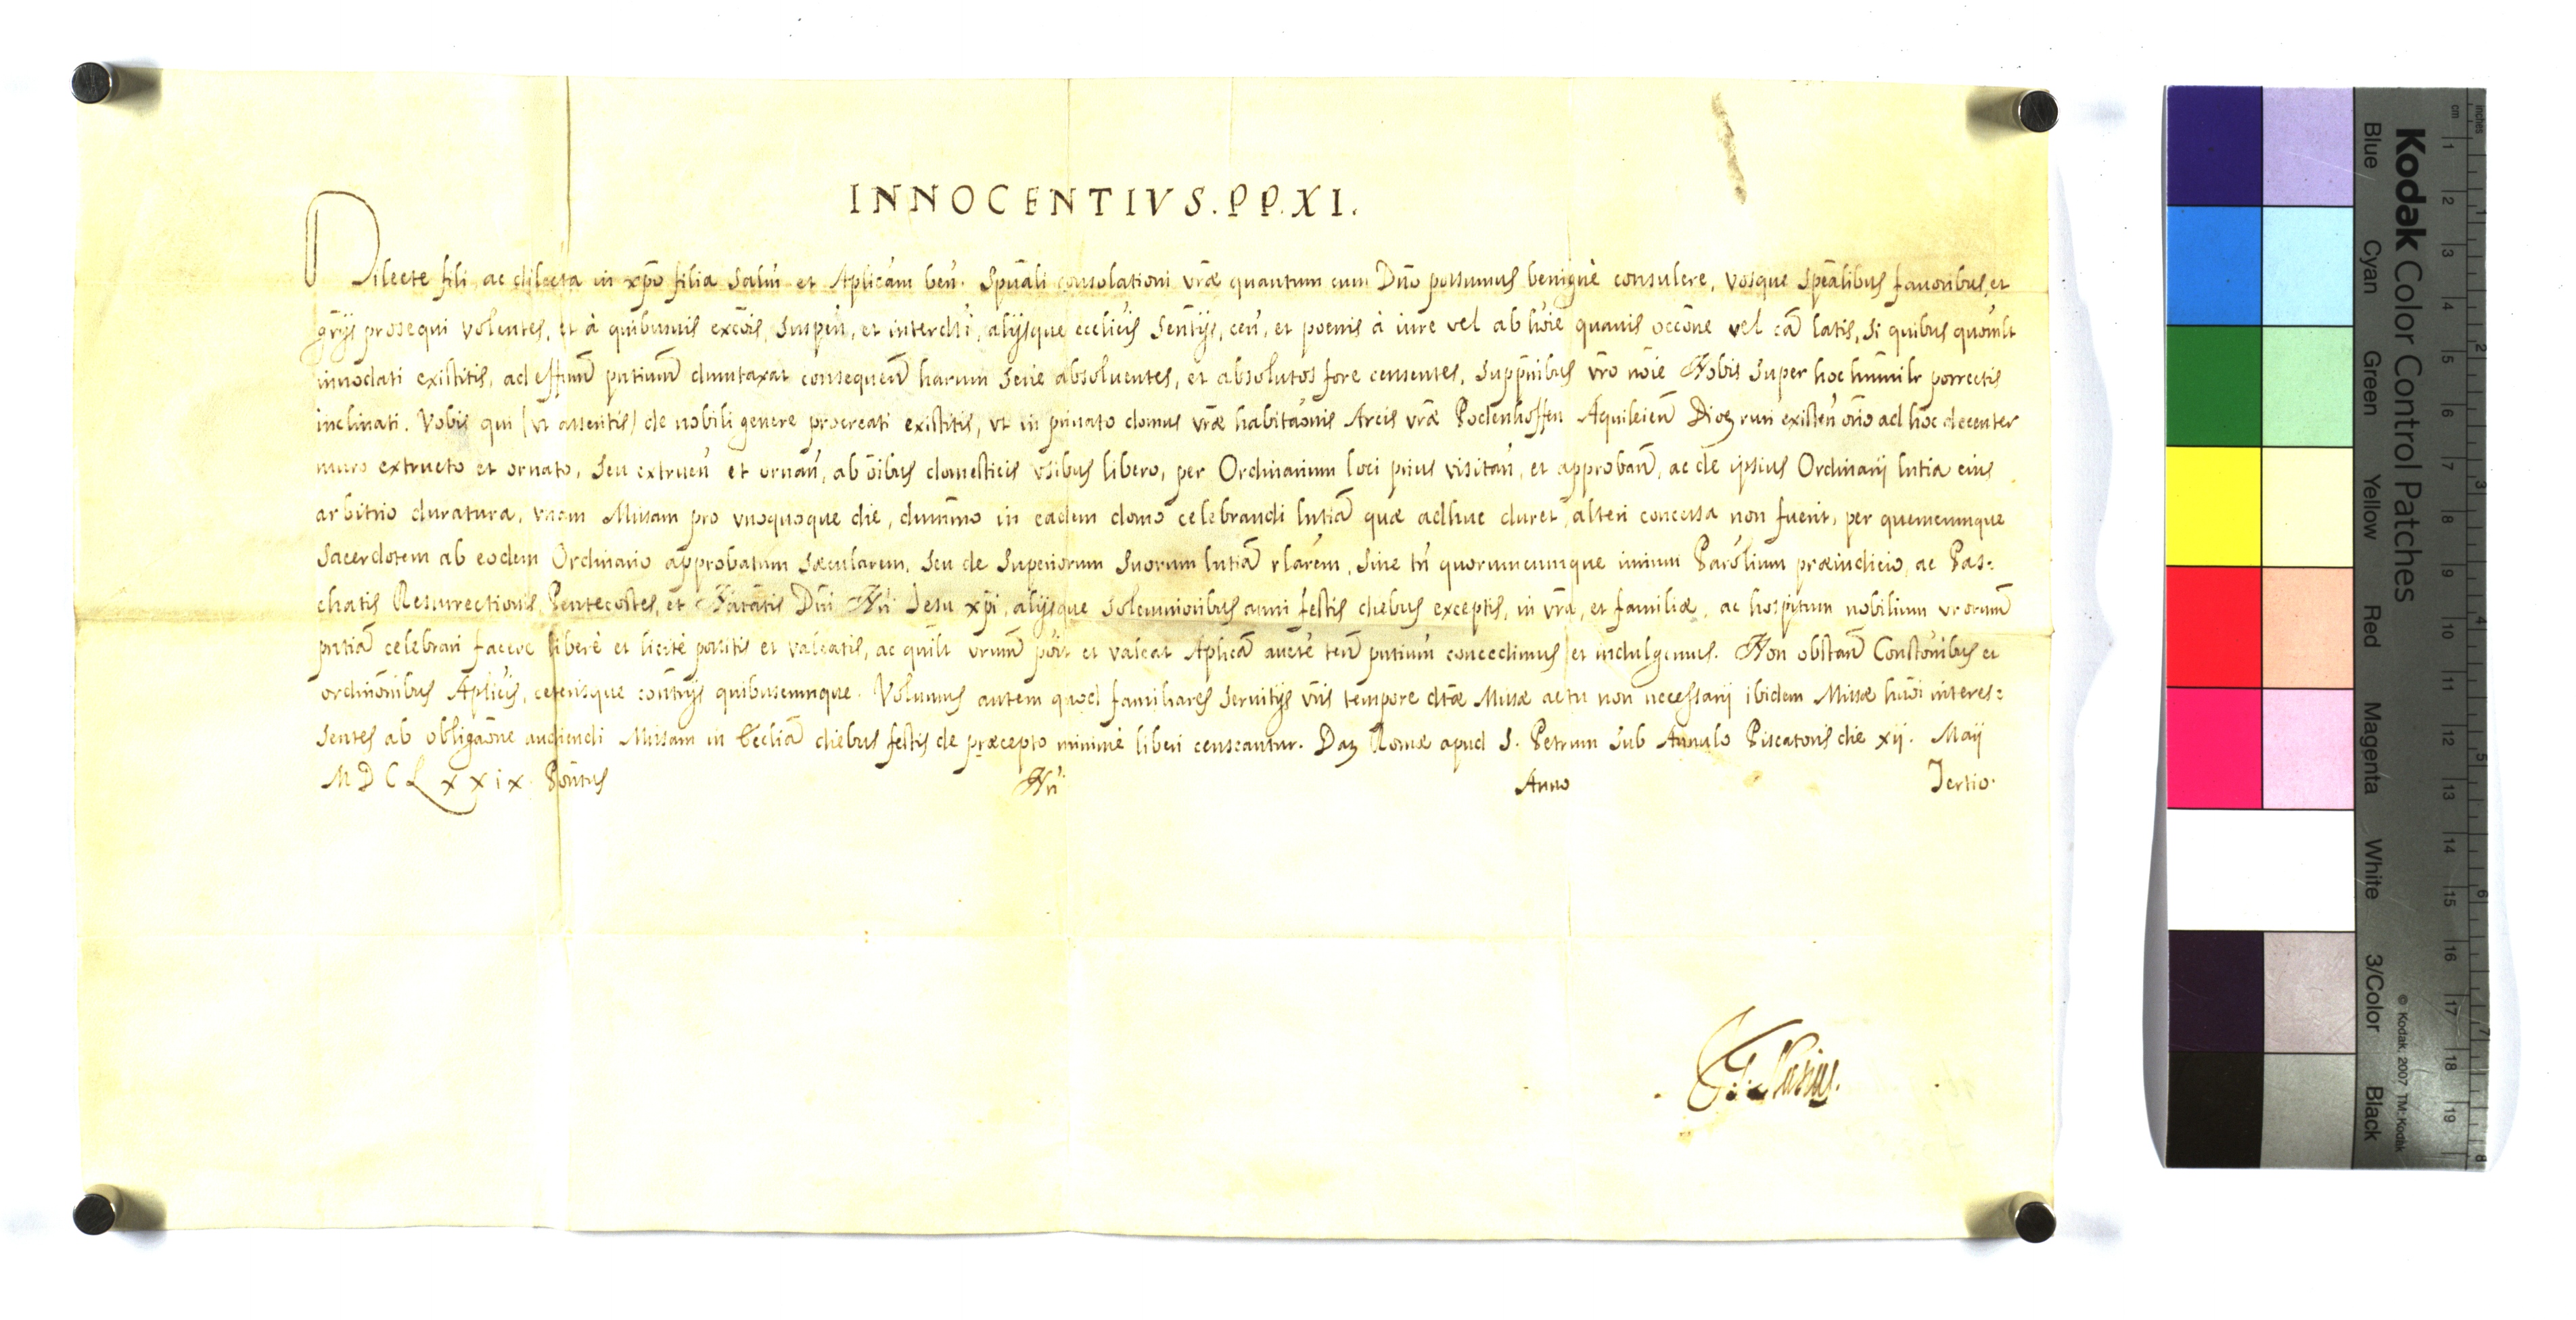 INNOCENTIVS.PP.XI.
Dilecte fili ac dilecta in xpo filia salm̄ et Aplicam ben. Spūali consolationi vr̄æ quantum cum Dn̄o possumus benignè consulere, vosque spēalibus fauoribus, et
gr̄ijs prosequi volentes, et à quibusuis excōis, suspen̄, et interdi, alijsque ecclicis sentijs, cen̄, et poenis à iure vel ab hoīe quauis occōne vel cā latis, si quibus quom̄lt
innodati existitis, ad effm̄ p̄ntium dumtaxat consequen̄ harum serie absoluentes, et absolutos fore censentes, supp̄nibus vr̄o nōie Nobis super hoc humilr porrectis
inclinati. Vobis qui (vt asseritis) de nobili genere procreati existitis, vt in priuato domus vr̄æ habitaōnis Arcis vr̄æ Podenhoffen Aquileien̄ Dioz ruri existen̄ orīo ad hoc decenter
muro extructo et ornato, seu extruen̄ et ornan̄, ab oībus domesticis vsibus libero, per Ordinarium loci prius visitan̄, et approban̄, ac de ipsius Ordinarij lntia eius
arbitrio duratura, vnam Missam pro vnoquoque die, dummo in eadem domo celebrandi lntiā quæ adhuc duret alteri concessa non fuerit, per quemcumque
Sacerdotem ab eodem Ordinario approbatum sæcularem, seu de superiorum suorum lntiā rlarem, sine tn̄ quorumcumque iurium Parolium præiudicio, ac Pas:
chatis Resurrectionis, Pentecostes, et Natātis Dn̄i Nr̄i Jesu xp̄i, alijsque solemnioribus anni festis diebus exceptis, in vr̄a, et familiæ, ac hospitum nobilium vrorum̄
p̄ntiā celebrari facere liberè et licitè possitis et valeatis, ac quilt vrum̄ possit et valeat Aplicā aucte ten̄ p̄ntium concedimus et indulgemus. Non obstan̄ Constōnibus et
ordinōnibus Aplicis, ceterisque contrijs quibuscumque. Volumus autem quod familiares seruitijs vris tempore dtæ Missæ actu non necessarij ibidem Missæ hm̄oi interes:
sentes ab obligaōne audiendi Missam in Eccliā diebus festis de præcepto minimè liberi censeantur. Dat Romæ apud S. Petrum sub Annulo Piscatoris die xij. Maij
MDCLxxix. Pontus Nr̄i Anno Tertio.